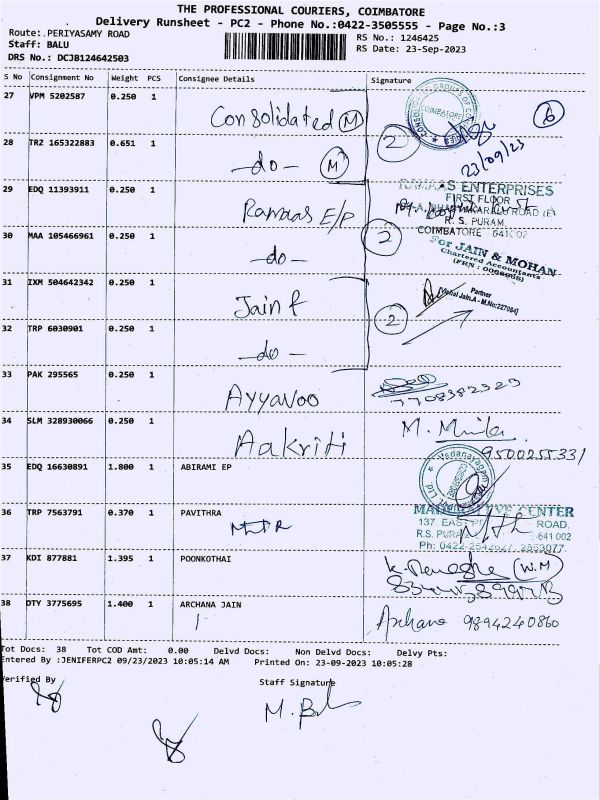 THE PROFESSIONAL COURIERS, COIMBATORE
Delivery Runsheet - PC2 - Phone No.:0422-3505555 - Page No.:3
Route: PERIYASAMY ROAD
Staff: BALU
DRS No.: DCJB124642503
RS No.: 1246425
RS Date: 23-Sep-2023
S No Consignment No Weight PCS Consignee Details Signature
27 VPM 5202587 0.250 1 Consolidated (M) 2 6
CONSOLIDATED GROUPS OF COMPANIES
COIMBATORE
23/09/23
28 TRZ 165322883 0.651 1 -do- (M)
29 EDQ 11393911 0.250 1 Ramaas E/P
S ENTERPRISES
FIRST FLOOR
ROAD (E)
R. S. PURAM
COIMBATORE
30 MAA 105466961 0.250 1 -do- 2
For JAIN & MOHAN
Chartered Accountants
31 IXM 504642342 0.250 1 Jain & 2
Partner
[Vishal Jain.A - M.No:227064]
32 TRP 6030901 0.250 1 -do-
33 PAK 295565 0.250 1 Ayyavoo
7708382323
34 SLM 328930066 0.250 1 Aakriti M.
9500255331
35 EDQ 16630891 1.800 1 ABIRAMI EP
36 TRP 7563791 0.370 1 PAVITHRA
CENTER
137, EAST ROAD,
R.S. PURAM 641 002
Ph: 0422-2542627, 2553077
37 KDI 877881 1.395 1 POONKOTHAI (W.M)
38 DTY 3775695 1.400 1 ARCHANA JAIN Archana 9894240860
Tot Docs: 38 Tot COD Amt: 0.00 Delvd Docs: Non Delvd Docs: Delvy Pts:
Entered By :JENIFERPC2 09/23/2023 10:05:14 AM Printed On: 23-09-2023 10:05:28
Verified By Staff Signature